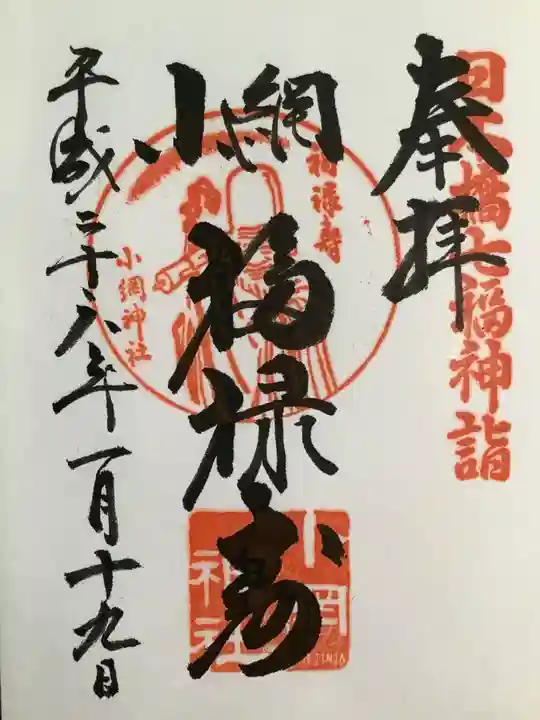 日本橋七福神詣
奉拝
小網
福禄寿
福禄寿
小網神社
小網
神社
JINJA
平成二十八年一月十九日